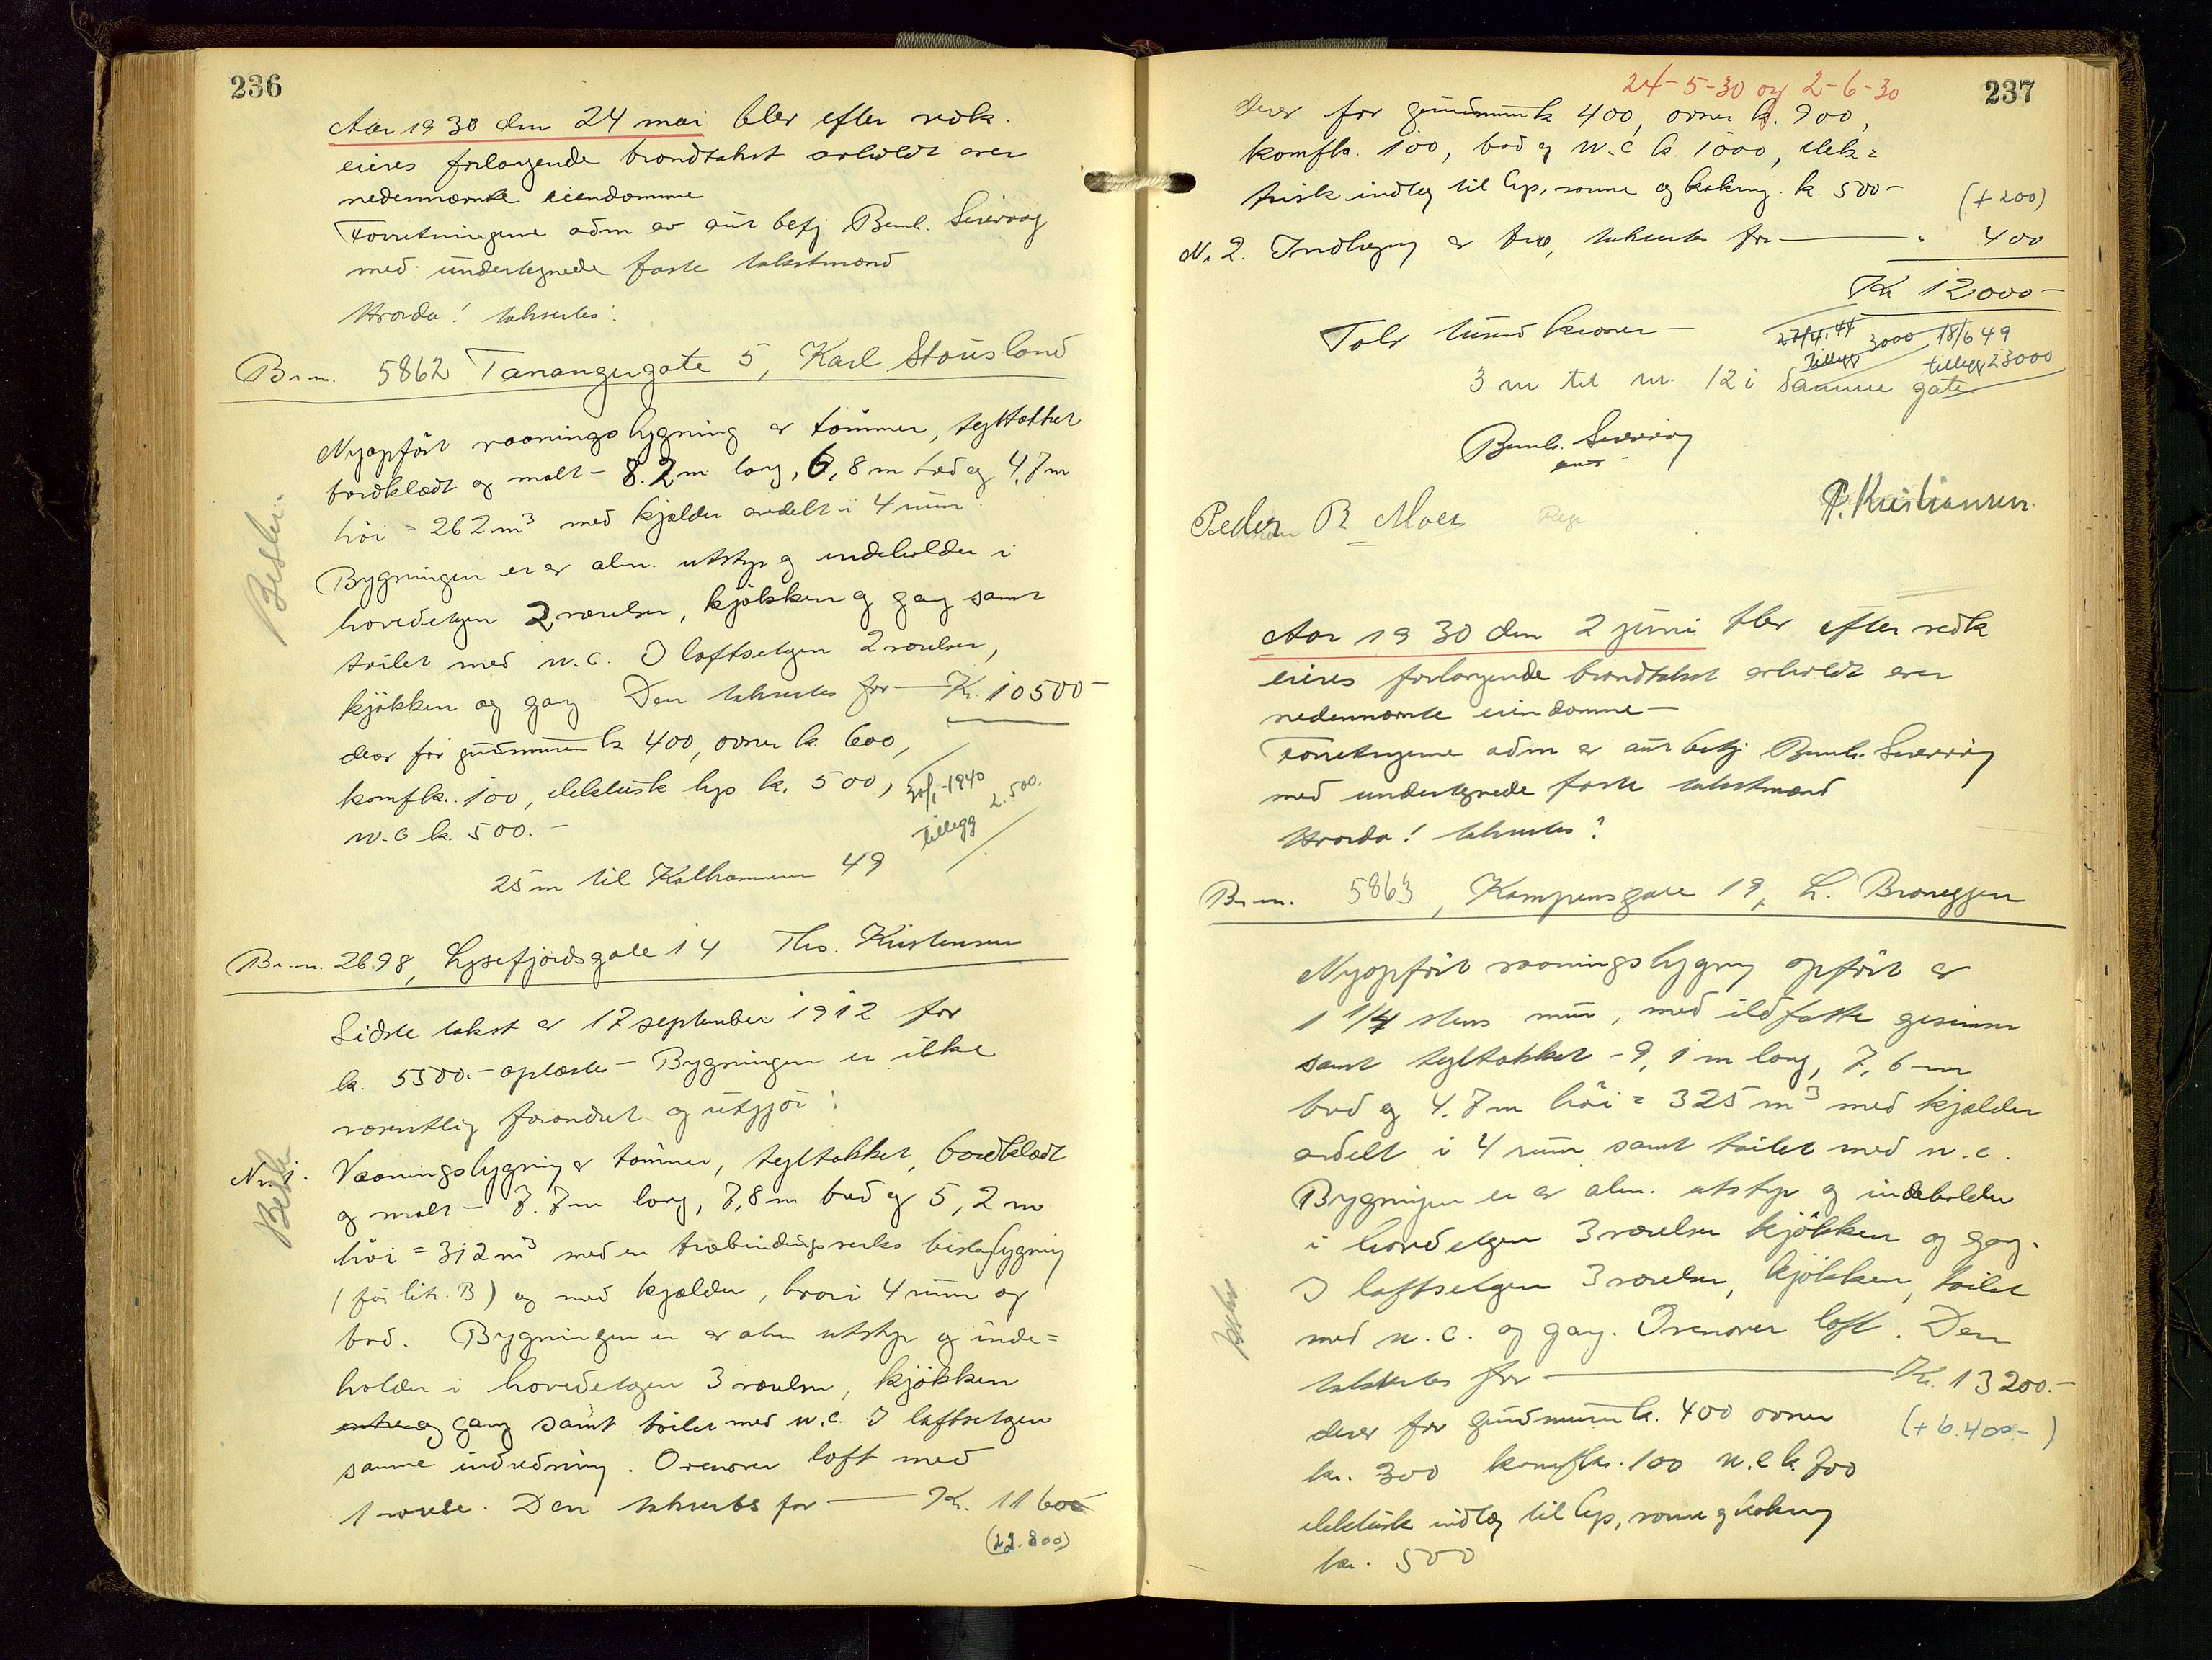 236
Aar 1930 den 24 mai blev efter vedk.
eieres forlangende brandtakst avholdt over
nedennævnte eiendomme
Forretningene adm av aut befg Bernh. Sivervag
med undertegnede faste takstmænd
Hvorda! taksertes:
Br.n. 5862 Tanangergate 5, Karl Stousland
Nyopført vaaningsbygning av tømmer, tegltækket
bordklædt og malt - 8.2 m lang, 6,8 m bred og 4,7 m
høi = 262 m³ med kjælder avdelt i 4 rum.
Bygningen er av alm. utstyr og indeholder i
hovedetagen 2 værelser, kjøkken og gang samt
toilet med w.c. I loftsetagen 2 værelser,
kjøkken og gang. Den takseres for — Kr. 10500-
derav for grundmuren k 400, ovner k. 600,
komfk. 100, elektrisk lys k. 500,
w.c k. 500.-
30/1-1940
Tillegg 2.500.
25 m til Kalhammeren 49
Besikt.
Br.n. 2698, Lysefjordsgate 14 Ths. Kristensen
Sidste takst av 17 september 1912 for
k. 5500.- oplæstes - Bygningen er ikke
væsentlig forandret og utgjør:
Nr. 1. Vaaningsbygning av tømmer, tegltækket, bordklædt
og malt - 7.7 m lang, 7,8 m bred og 5,2 m
høi = 312 m³ med en træbindingsverks bislagbygning
(før litr. B) og med kjælder, hvori 4 rum og
bod. Bygningen er av alm utstyr og inde=
holder i hovedetagen 3 værelser, kjøkken
entre og gang samt toilet med w.c. I loftsetagen
samme indredning. Ovenover loft med
1 værelse. Den takseres for — Kr. 11600
(22.800)
24-5-30 og 2-6-30
237
derav for grundmuren k 400, ovner k. 900,
komfk. 100, bad og w.c k. 1000, elek=
trisk indlæg til lys, varme og kokning k. 500-
(+200)
N. 2. Indhegning av træ, takseres for — " 400
Kr 12000-
Tolv tusend kroner -
27/4.44 Tillegg 3000
18/6 49 tillegg 23000
3 m til nr. 12 i samme gate
Bernh. Sivervag
aut.
Peder R Moes
P. Kristiansen.
Aar 1930 den 2 juni blev efter vedk
eieres forlangende brandtakst avholdt over
nedennævnte eiendomme -
Forretningene adm av aut befg Bernh. Sivervag
med undertegnede faste takstmænd
Hvorda! taksertes:
Br.n. 5863, Kampensgate 19, L. Broneggen
Nyopført vaaningsbygning opført av
1 1/4 stens mur, med ildfaste gesimser
samt tegltækket - 9,1 m lang, 7,6 m
bred og 4.7 m høi = 325 m³ med kjælder
avdelt i 4 rum samt toilet med w.c.
Bygningen er av alm. utstyr og indeholder
i hovedetagen 3 værelser kjøkken og gang.
I loftsetagen 3 værelser, kjøkken, toilet
med w.c. og gang. Ovenover loft. Den
takseres for — Kr. 13200.-
derav for grundmuren k. 400 ovner
(+6.400.-)
kr. 300 komfk. 100 w.c k. 700
elektrisk indlæg til lys, varme og kokning
kr. 500